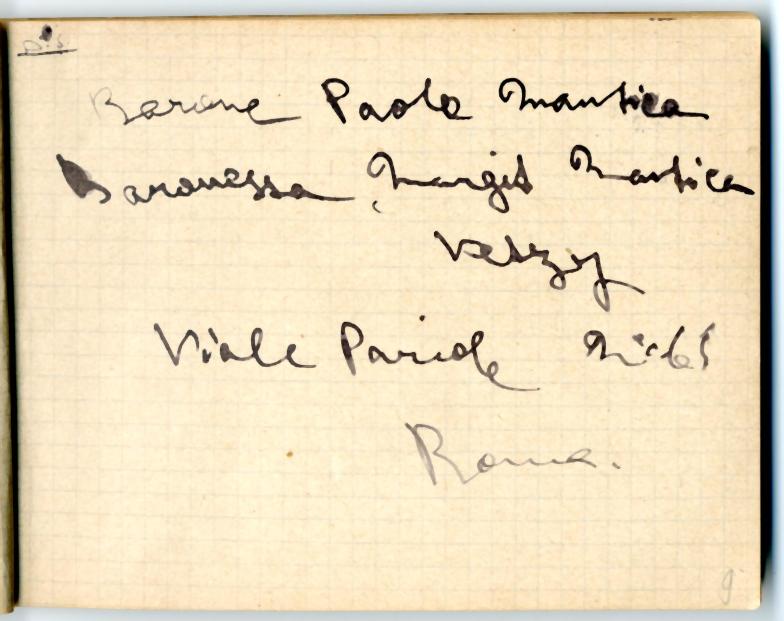 Barone Paolo Mantica
Baronessa Margit Mantica
Veszy
Viale Pariole
Roma.
9